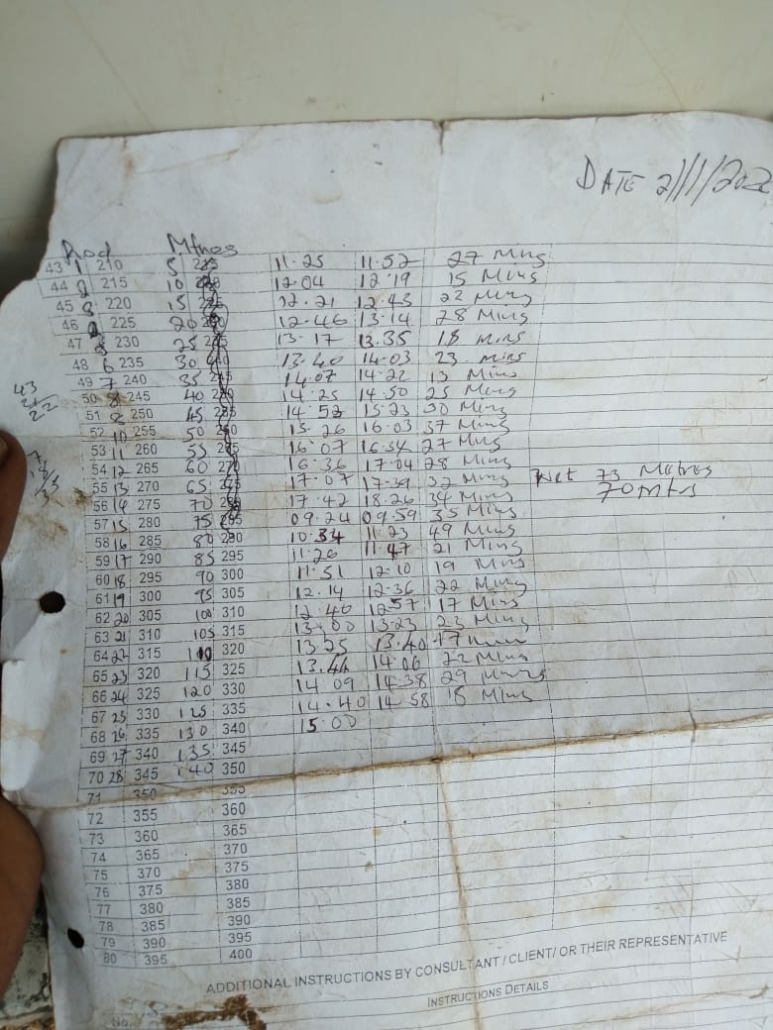 DATE 2/1/202
Rod Mtres
43 1 210 5 11.25 11.52 27 Mins
44 2 215 10 12.04 12.19 15 Mins
45 3 220 15 12.21 12.43 22 Mins
46 225 20 12.46 13.14 28 Mins
47 230 25 13.17 13.35 18 mins
48 6 235 30 13.40 14.03 23 mins
49 7 240 35 14.07 14.22 Mins
50 8 245 40 14.25 14.50 25 Mins
51 250 45 14.53 15.23 30 Mins
52 10 255 50 15.26 16.03 37 Mins
53 11 260 55 16.07 16.34 27 Mins
54 12 265 60 16.36 17.04 28 Mins
55 13 270 65 17.07 17.39 32 Mins Wet 73 Metres
56 14 275 70 17.42 18.26 34 Mins 70 mtrs
57 15 280 75 285 09.24 09.59 35 Mins
58 16 285 80 290 10.34 11.23 49 Mins
59 17 290 85 295 11.26 11.47 21 Mins
60 18 295 90 300 11.51 12.10 19 Mins
61 19 300 95 305 12.14 12.36 22 Mins
62 20 305 100 310 12.40 12.57 17 Mins
63 21 310 105 315 13.00 13.23 23 Mins
64 22 315 110 320 13.25 13.40 17
65 23 320 115 325 13.44 14.06 22 Mins
66 24 325 120 330 14.09 14.38 29 Mins
67 25 330 125 335 14.40 14.58 18 Mins
68 26 335 130 340 15.00
69 27 340 135 345
70 28 345 140 350
71 350 355
72 355 360
73 360 365
74 365 370
75 370 375
76 375 380
77 380 385
78 385 390
79 390 395
80 395 400
43
22
ADDITIONAL INSTRUCTIONS BY CONSULTANT / CLIENT/ OR THEIR REPRESENTATIVE
INSTRUCTIONS DETAILS